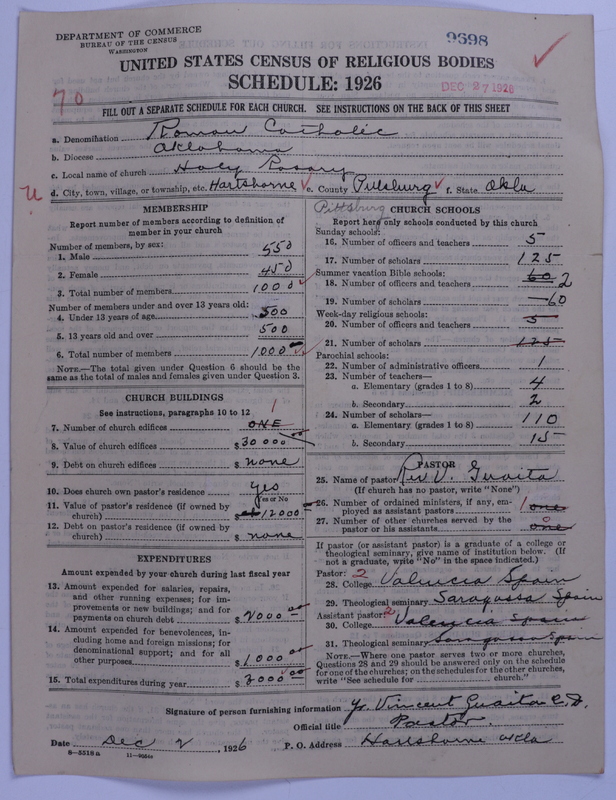 DEPARTMENT OF COMMERCE
BUREAU OF THE CENSUS
WASHINGTON
9698
UNITED STATES CENSUS OF RELIGIOUS BODIES
SCHEDULE: 1926
DEC 27 1926
70
FILL OUT A SEPARATE SCHEDULE FOR EACH CHURCH. SEE INSTRUCTIONS ON THE BACK OF THIS SHEET
a. Denomination Roman Catholic
b. Diocese Oklahoma
c. Local name of church Holy Rosary
d. City, town, village, or township, etc. Hartshorne e. County Pittsburg f. State Okla
Pittsburg
MEMBERSHIP
Report number of members according to definition of
member in your church
Number of members, by sex:
1. Male 550
2. Female 450
3. Total number of members 1000
Number of members under and over 13 years old:
4. Under 13 years of age 500
5. 13 years old and over 500
6. Total number of members 1000
NOTE.—The total given under Question 6 should be the
same as the total of males and females given under Question 3.
CHURCH BUILDINGS
See instructions, paragraphs 10 to 12
1
7. Number of church edifices ONE
8. Value of church edifices $ 30000 00
9. Debt on church edifices $ none
10. Does church own pastor's residence yes
(Yes or No)
11. Value of pastor's residence (if owned by
church) $ 12000
12. Debt on pastor's residence (if owned by
church) $ none
EXPENDITURES
Amount expended by your church during last fiscal year
13. Amount expended for salaries, repairs,
and other running expenses; for im-
provements or new buildings; and for
payments on church debt $ 2000 00
14. Amount expended for benevolences, in-
cluding home and foreign missions; for
denominational support; and for all
other purposes $ 1000 00
15. Total expenditures during year $ 3000 00
CHURCH SCHOOLS
Report here only schools conducted by this church
Sunday schools:
16. Number of officers and teachers 5
17. Number of scholars 125
Summer vacation Bible schools:
18. Number of officers and teachers 60 2
19. Number of scholars 60
Week-day religious schools:
20. Number of officers and teachers 5
21. Number of scholars 125
Parochial schools:
22. Number of administrative officers 1
23. Number of teachers—
a. Elementary (grades 1 to 8) 4
b. Secondary 2
24. Number of scholars—
a. Elementary (grades 1 to 8) 110
b. Secondary 15
PASTOR
25. Name of pastor Rev V. Guaita
(If church has no pastor, write "None")
26. Number of ordained ministers, if any, em-
ployed as assistant pastors 1 one
27. Number of other churches served by the
pastor or his assistants one
If pastor (or assistant pastor) is a graduate of a college or
theological seminary, give name of institution below. (If
not a graduate, write "No" in the space indicated.)
Pastor: 2
28. College Valencia Spain
29. Theological seminary Saragossa Spain
Assistant pastor: 2
30. College Valencia Spain
31. Theological seminary Saragossa Spain
NOTE.—Where one pastor serves two or more churches,
Questions 28 and 29 should be answered only on the schedule
for one of the churches; on the schedules for the other churches,
write "See schedule for church."
Signature of person furnishing information Fr. Vincent Guaita C.D.
Official title Pastor.
Date Dec 2, 1926 P. O. Address Hartshorne Okla
8—5518 a